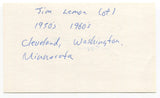 Jim Lemon (of)
1950s 1960s
Cleveland, Washington,
Minnesota